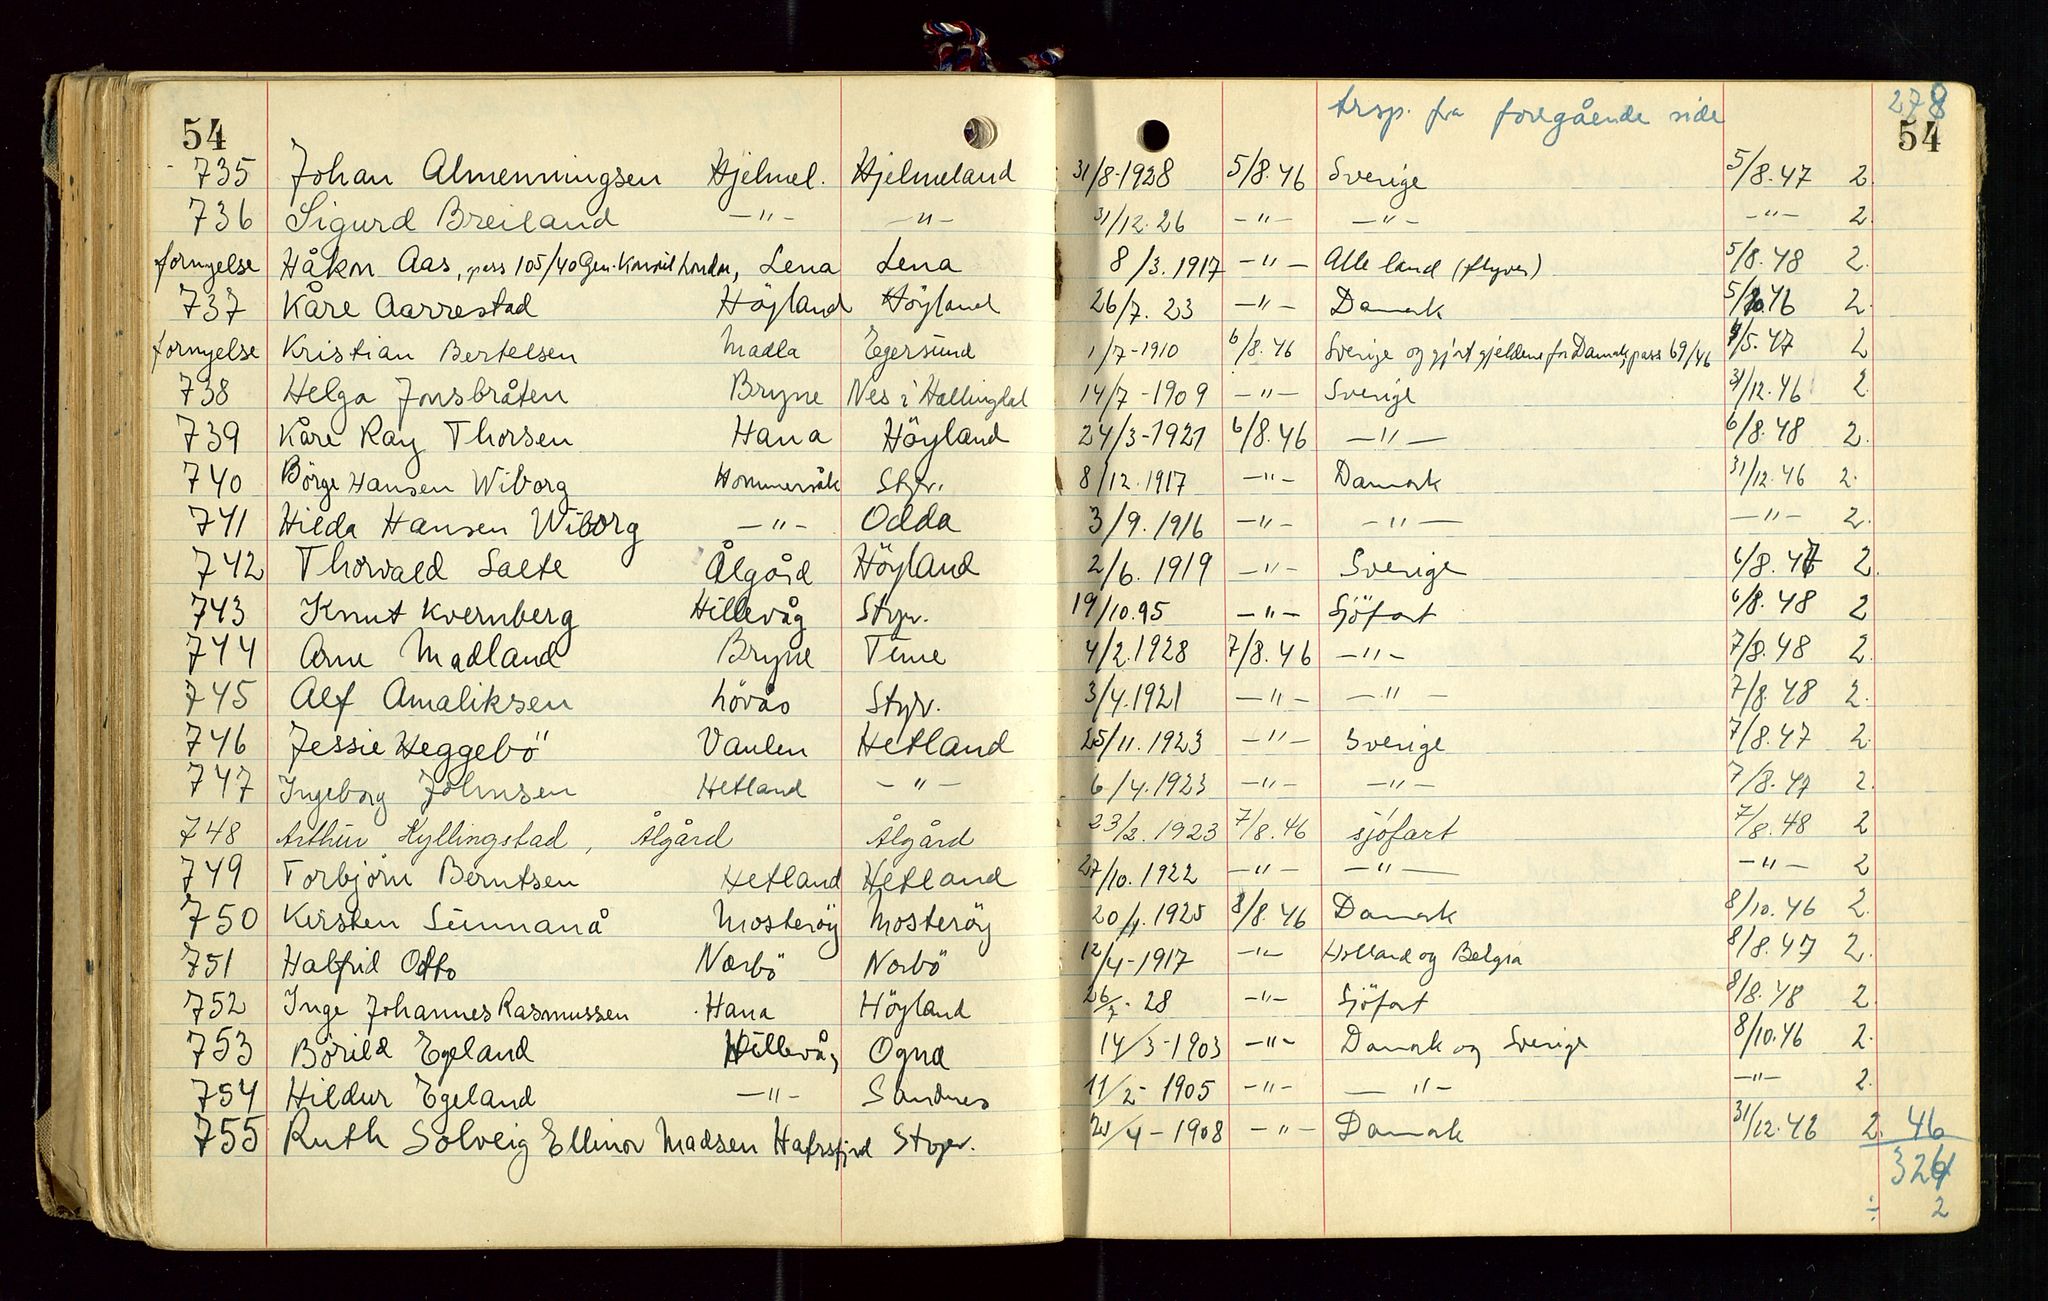 trsp. fra foregående side 278
54 54
735 Johan Almenningsen Hjelmel. Hjelmeland 31/8-1928 5/8.46 Sverige 5/8.47 2.
736 Sigurd Breiland —"— —"— 31/12.26 —"— —"— —"— 2.
fornyelse Håkon Aas, pass 105/40 Gen. Konsul London, Lena Lena 8/3.1917 —"— Alle land (flyver) 5/8.48 2.
737 Kåre Aarrestad Höyland Höyland 26/7.23 —"— Danmark 5/10.46 2.
fornyelse Kristian Bertelsen Madla Egersund 1/7-1910 6/8.46 Sverige og gjort gjeldene for Danmark, pass 69/46 /5.47 2
738 Helga Jonsbråten Bryne Nes i Hallingdal 14/7-1909 —"— Sverige 31/12.46 2.
739 Kåre Ray Thorsen Hana Höyland 24/3-1921 6/8.46 —"— 6/8.48 2.
740 Börge Hansen Wiborg Hommersåk Stgr. 8/12.1917 —"— Danmark 31/12.46 2.
741 Hilda Hansen Wiborg —"— Odda 3/9.1916 —"— —"— —"— 2.
742 Thorvald Salte Ålgård Höyland 2/6.1919 —"— Sverige 6/8.47 2.
743 Knut Kvernberg Hillevåg Stgr. 19/10.95 —"— Sjöfart 6/8.48 2
744 Arne Madland Bryne Time 4/2.1928 7/8.46 —"— 7/8.48 2.
745 Alf Amaliksen Lövås Stgr. 3/4.1921 —"— —"— 7/8.48 2.
746 Jessie Heggebö Vaulen Hetland 25/11.1923 —"— Sverige 7/8.47 2.
747 Ingeborg Johnsen Hetland —"— 6/4.1923 —"— —"— 7/8.47 2.
748 Arthur Kyllingstad, Ålgård Ålgård 23/2.1923 7/8.46 sjöfart 7/8.48 2
749 Torbjörn Berntsen Hetland Hetland 27/10.1922 —"— —"— —"— 2
750 Kirsten Sunnanå Mosteröy Mosteröy 20/.1925 8/8.46 Danmark 8/10.46 2.
751 Halfrid Otto Nærbö Nærbö 12/4-1917 —"— Holland og Belgia 8/8.47 2.
752 Inge Johannes Rasmussen Hana Höyland 26/7-28 —"— Sjöfart 8/8.48 2.
753 Börild Egeland Hillevåg Ogna 14/3-1903 —"— Danmark og Sverige 8/10.46 2.
754 Hildur Egeland —"— Sandnes 11/2-1905 —"— —"— —"— 2.
755 Ruth Solveig Ellinor Madsen Hafrsfjord Stgr. /4-1908 —"— Danmark 31/12.46 2. 46
324
÷ 2